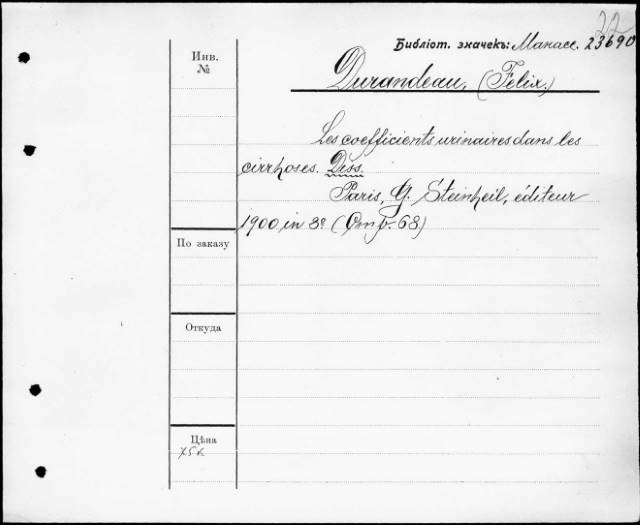 22
Библіот. значекъ: Манасс. 23690
Инв.
№
Durandeau, (Felix.)
Les coefficients urinaires dans les
cirrhoses. Diss.
Paris, G. Steinheil, éditeur
1900, in 8º (Стр. 68)
По заказу
Откуда
Цѣна
75к